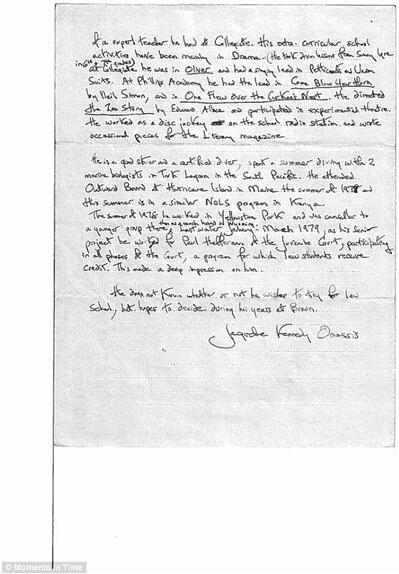 of a superb teacher he had at Collegiate. His extra-curricular school
activities have been mainly in Drama - (He took drum lessons from
in 6th & 7th grades)
at Collegiate he was in Oliver and had a singing lead in Petticoats and Union
Suits. At Phillips Academy he had the lead in Come Blow Your Horn
by Neil Simon, and in One Flew Over the Cuckoo's Nest. He directed
the Zoo Story by Edward Albee and participated in experimental theatre.
He worked as a disc jockey on the school radio station and wrote
occasional pieces for the Literary magazine
He is a good skier and a certified diver, spent a summer diving with 2
marine biologists in Truk Lagoon in the South Pacific. He attended
Outward Bound at Hurricane Island in Maine the summer of 1977 and
this summer is in a similar NOLS program in Kenya.
The summer of 1978 he worked in Yellowstone Park
then as a ranch hand in Wyoming
and was counsellor to
a younger group there. Last winter January - March 1979, as his senior
project he worked for Paul Heffernan at the Juvenile Court, participating
in all phases of the Court, a program for which law students receive
credit. This made a deep impression on him.
He does not know whether or not he wishes to try for law
School, but hopes to decide during his years at Brown.
Jacqueline Kennedy Onassis
© Moments in Time